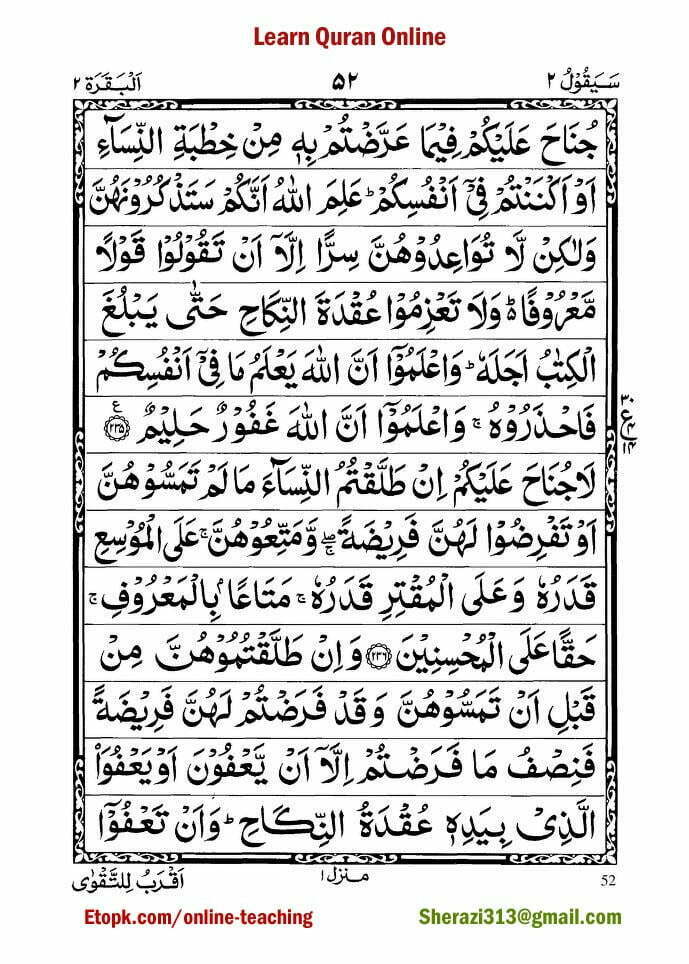 Learn Quran Online
سَيَقُوۡلُ ٢
۵۲
اَلۡبَقَرَة ٢
جُنَاحَ عَلَيۡكُمۡ فِيۡمَا عَرَّضۡتُمۡ بِهٖ مِنۡ خِطۡبَةِ النِّسَآءِ
اَوۡ اَكۡنَنۡتُمۡ فِىۡٓ اَنۡفُسِكُمۡ‌ؕ عَلِمَ اللّٰهُ اَنَّكُمۡ سَتَذۡكُرُوۡنَهُنَّ
وَلٰكِنۡ لَّا تُوَاعِدُوۡهُنَّ سِرًّا اِلَّاۤ اَنۡ تَقُوۡلُوۡا قَوۡلًا
مَّعۡرُوۡفًا‌ؕ وَلَا تَعۡزِمُوۡا عُقۡدَةَ النِّکَاحِ حَتّٰى يَبۡلُغَ
الۡكِتٰبُ اَجَلَهٗ‌ؕ وَاعۡلَمُوۡٓا اَنَّ اللّٰهَ يَعۡلَمُ مَا فِىۡٓ اَنۡفُسِكُمۡ
فَاحۡذَرُوۡهُ‌ۚ وَاعۡلَمُوۡٓا اَنَّ اللّٰهَ غَفُوۡرٌ حَلِيۡمٌ ﴿۲۳۵﴾ ع
۳۰
ع
۴
۱۴
لَا جُنَاحَ عَلَيۡكُمۡ اِنۡ طَلَّقۡتُمُ النِّسَآءَ مَا لَمۡ تَمَسُّوۡهُنَّ
اَوۡ تَفۡرِضُوۡا لَهُنَّ فَرِيۡضَةً ۖۚ وَّمَتِّعُوۡهُنَّ‌ۚ عَلَى الۡمُوۡسِعِ
قَدَرُهٗ وَعَلَى الۡمُقۡتِرِ قَدَرُهٗ‌ۚ مَتَاعًاۢ بِالۡمَعۡرُوۡفِ‌ۚ
حَقًّا عَلَى الۡمُحۡسِنِيۡنَ ﴿۲۳۶﴾ وَاِنۡ طَلَّقۡتُمُوۡهُنَّ مِنۡ
قَبۡلِ اَنۡ تَمَسُّوۡهُنَّ وَقَدۡ فَرَضۡتُمۡ لَهُنَّ فَرِيۡضَةً
فَنِصۡفُ مَا فَرَضۡتُمۡ اِلَّاۤ اَنۡ يَّعۡفُوۡنَ اَوۡ يَعۡفُوَا
الَّذِىۡ بِيَدِهٖ عُقۡدَةُ النِّكَاحِ‌ؕ وَاَنۡ تَعۡفُوۡٓا
اَقۡرَبُ لِلتَّقۡوٰى
منزل ۱
52
Etopk.com/online-teaching
Sherazi313@gmail.com